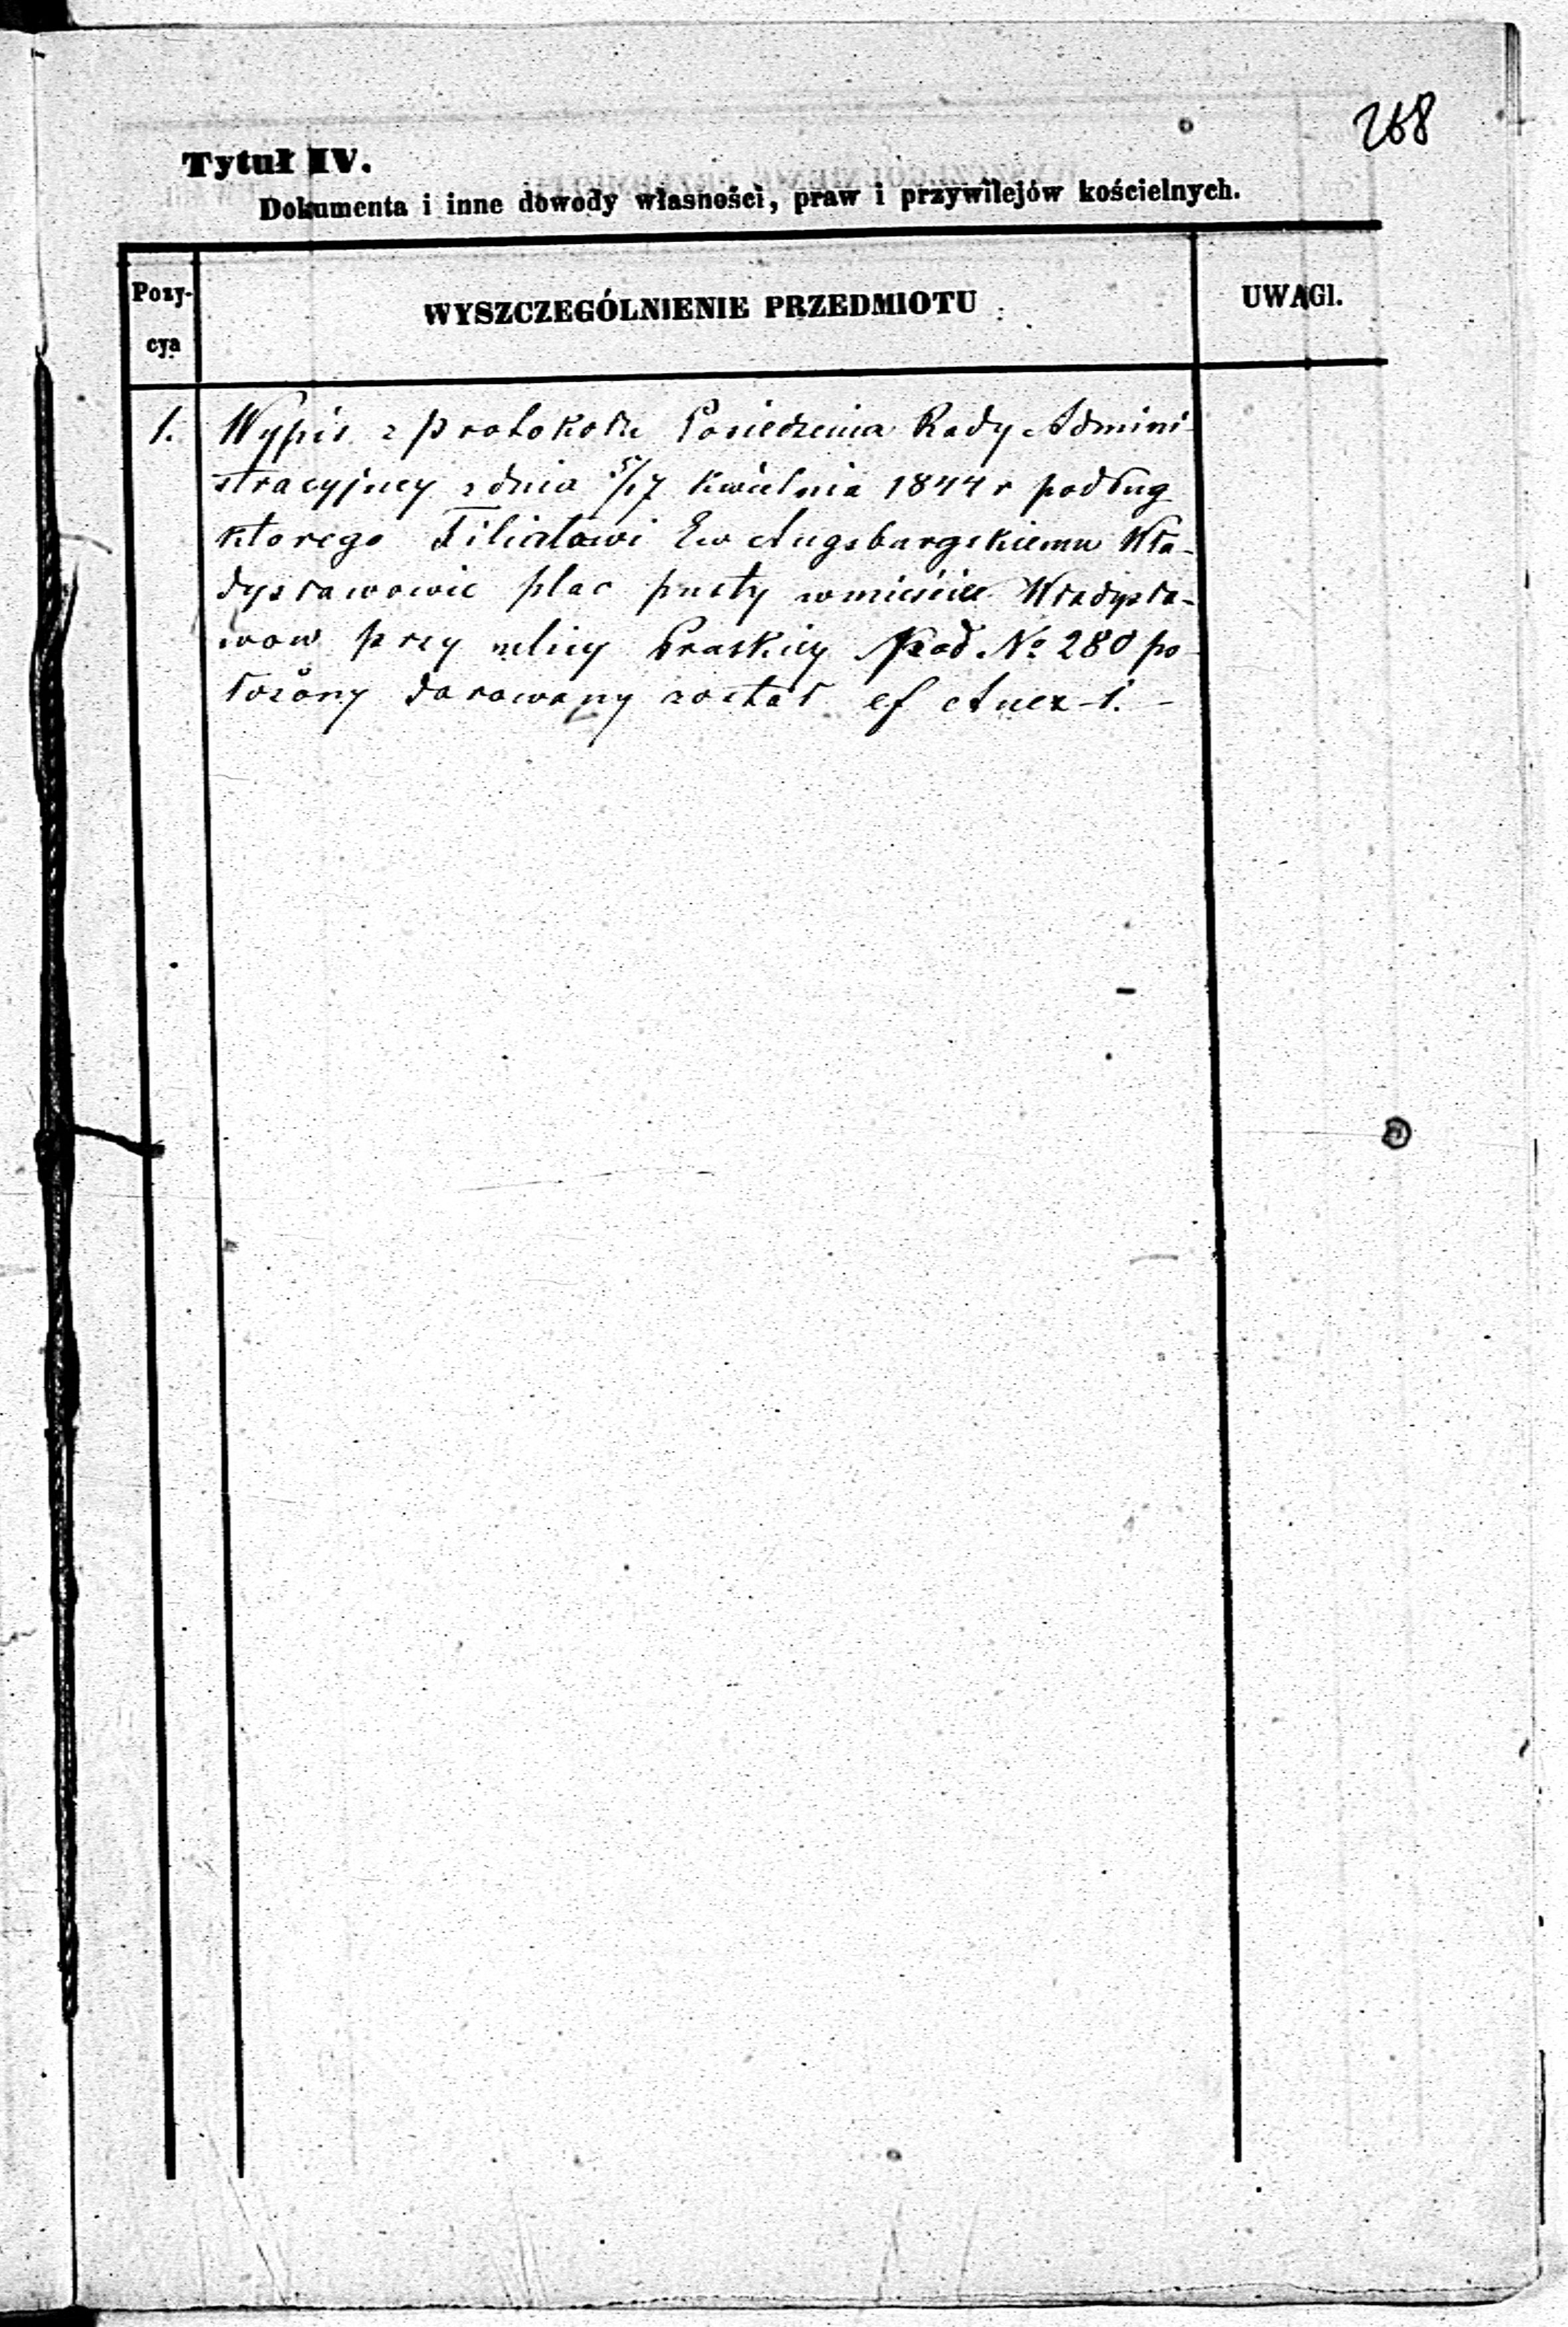 268
Tytuł IV.
Dokumenta i inne dowody własności, praw i przywilejów kościelnych.
Pozy-
cya
WYSZCZEGÓLNIENIE PRZEDMIOTU
UWAGI.
1. Wypis z protokołu Posiedzenia Rady Admini-
stracyjney z dnia 5/17 Kwietnia 1844 r podług
ktorego Filiałowi Ew Augsburgskiemu Wła-
dysławowie plac pusty w mieście Władysła-
wow przy ulicy Praskiey Pod No 280 po-
łożony darowany został cf Anex 1. -